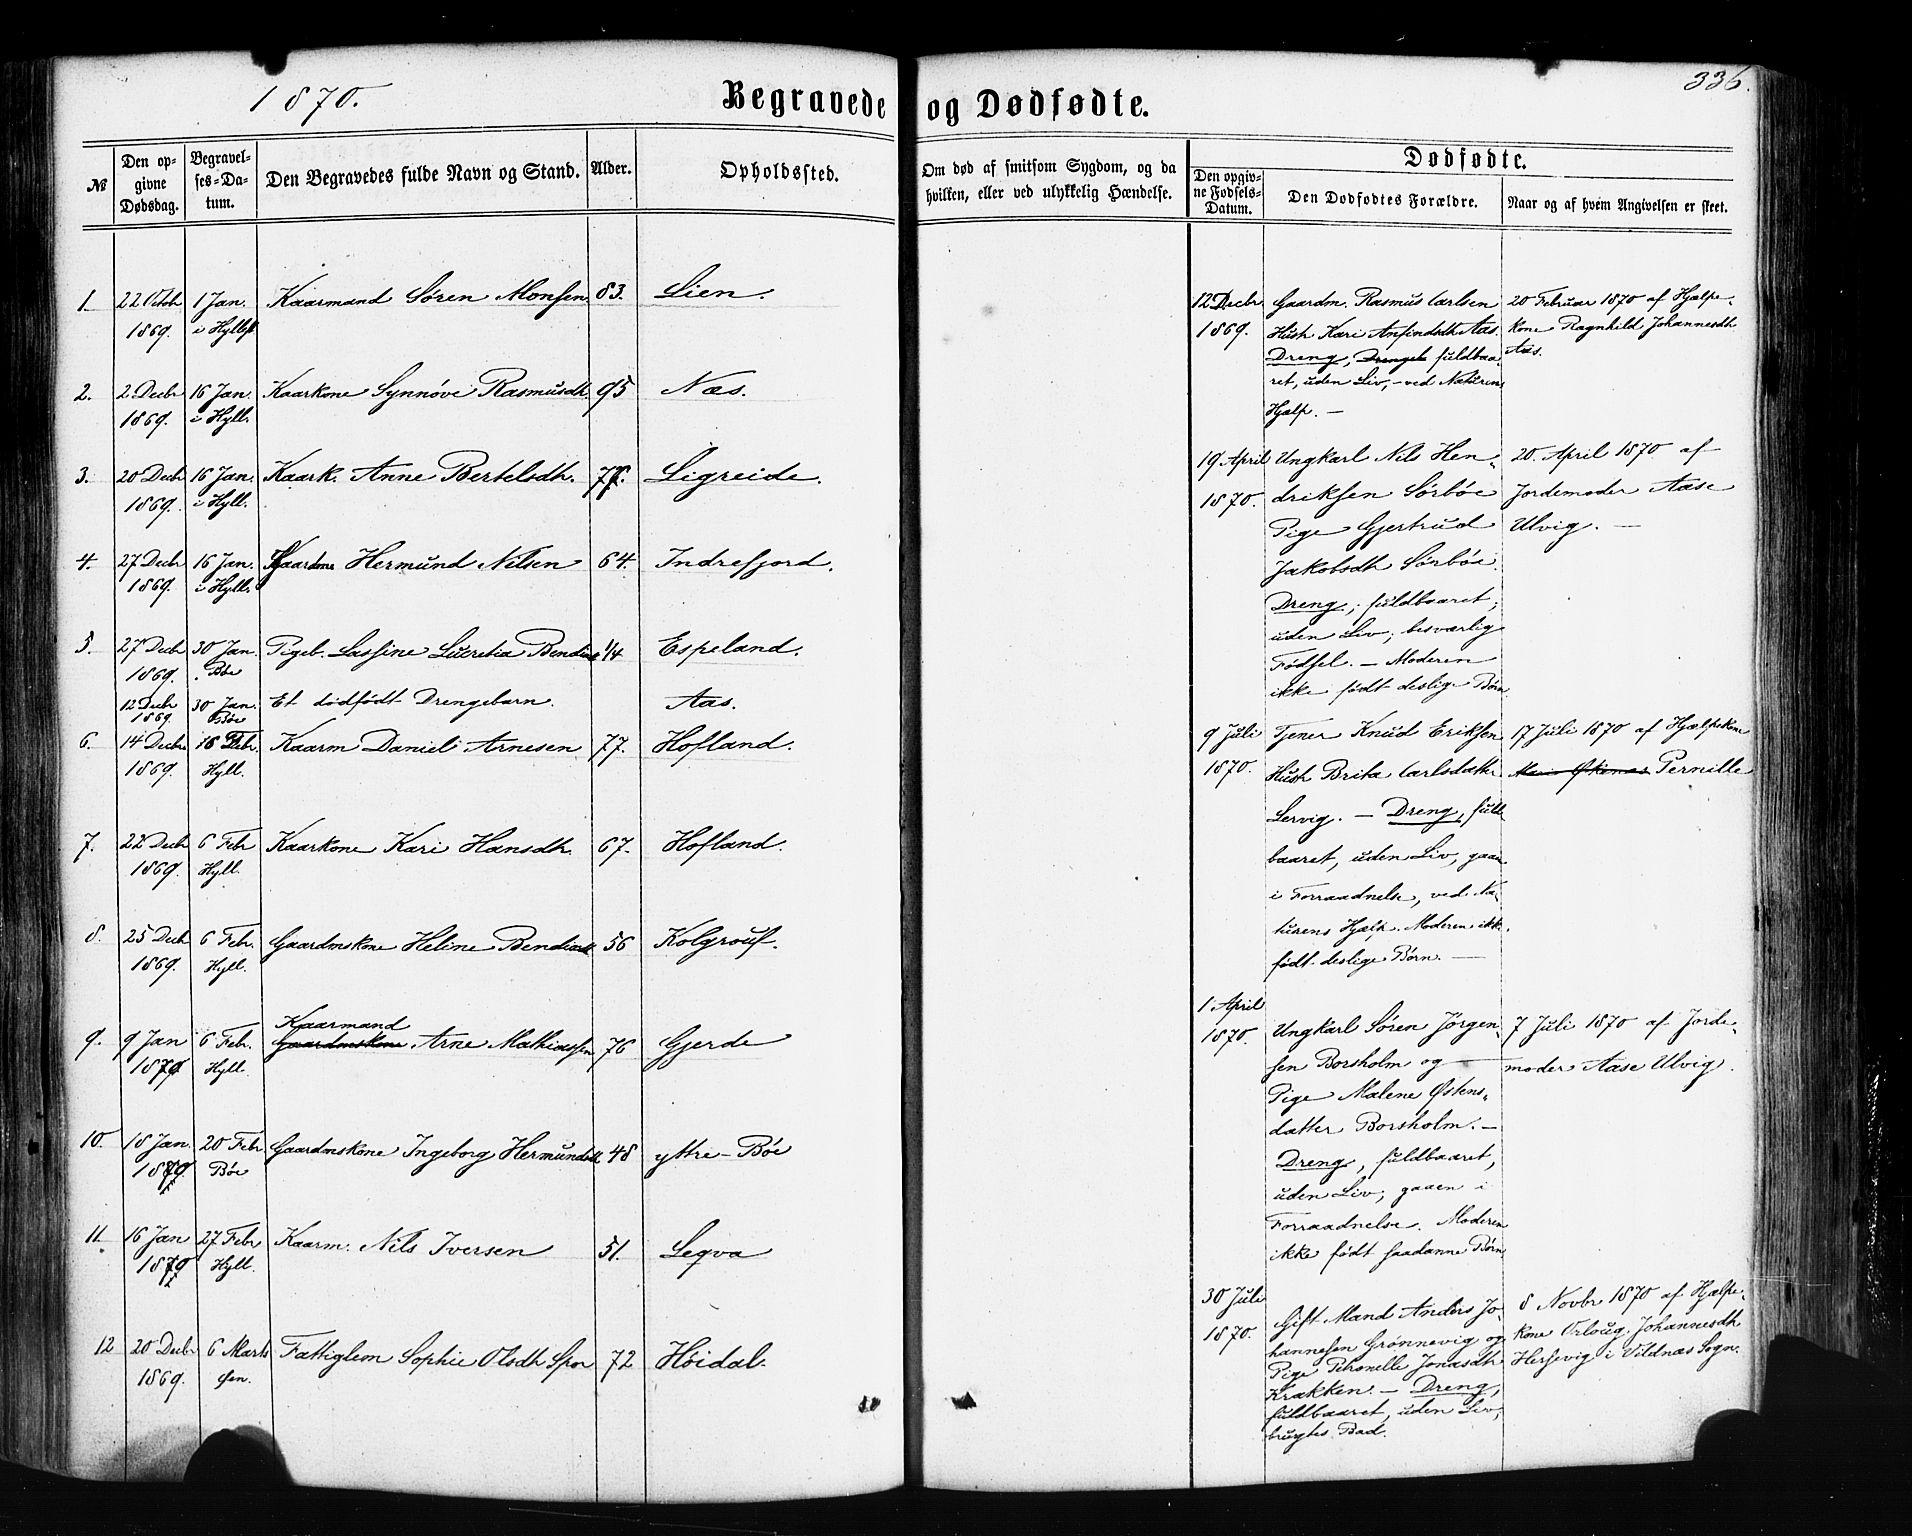 1870.
Begravede og Dødfødte.
336.
№
Den opgivne Dødsdag.
Begravelses-Datum.
Den Begravedes fulde Navn og Stand.
Alder.
Opholdssted.
Om død af smitsom Sygdom, og da hvilken, eller ved ulykkelig Hændelse.
Dødfødte.
Den opgivne Fødsels-Datum.
Den Dødfødtes Forældre.
Naar og af hvem Angivelsen er skeet.
1. 22 Octobr 1 Jan. Kaarmand Søren Monsen 83. Lien.
1869. i Hyllest
2. 2 Decbr 16 Jan. Kaarkone Synnøve Rasmusdh. 95 Næs.
1869. i Hyll.
3. 20 Decbr 16 Jan. Kaark. Anne Bertelsdh. Ligreide.
1869. i Hyll.
4. 27 Decbr 16 Jan. Hermund Nilsen 64. Indrefjord.
1869. i Hyll.
5. 27 Decbr 30 Jan. Pigeb. Lassine Lucretia 1/4 Espeland.
1869. Bøe
12 Decbr 30 Jan. Et dødfødt Drengebarn. Aas.
1869. Bøe
6. 14 Decbr Febr. Kaarm Daniel Arnesen 77. Hofland.
1869. Hyll.
7. 22 Decbr 6 Febr Kaarkone Kari Hansdh. 67. Hofland.
1869. Hyll.
8. 25 Decbr 6 Febr. Gaardmskone Heline 56 Kolgrouf.
1869. Hyll.
Kaarmand
9. 9 Jan 6 Febr. Gaardmskone Arne Mathiassen 76 Gjerde
1870 Hyll.
10. 18 Jan 20 Febr Gaardmskone Ingeborg Hermundsdt 48 yttre-Bøe
1870. Bøe
11. 16 Jan 27 Febr Kaarm. Nils Iversen 51. Leqva
1870 Hyll.
12 20 Decbr 6 Marts Fattiglem Sophie Olsdh 72 Høidal.
1869.
12 Decbr. Gaardm. Rasmus Carlsen 20 Februar 1870 af Hjælpe-
1869. Hush Kari Anfindsdh Aas. kone Ragnhild Johannesdh
Dreng, fuldbaa- Aas.
ret, uden Liv, - ved Naturens
Hjælp. —
19 April Ungkarl Nils Hen- 20. April 1870 af
1870. driksen Sørbøe Jordemoder Aase
Pige Gjertrud Ulvig. —
Jakobsdh Sørbøe.
Dreng; fuldbaaret;
uden Liv; besværlig
Fødsel. — Moderen
ikke født deslige Børn
9 Juli Tjener Knud Eriksen 17 Juli 1870 af Hjælpekone
1870. Hush Brita Carlsdatter Pernille
Lervig. — Dreng, fuld-
baaret, uden Liv, gaaen
i Forraadnelse, ved Na-
turens Hjælp. Moderen ikke
født deslige Børn. —
1 April
1870. Ungkarl Søren Jørgen- 7 Juli 1870 af Jorde-
sen Borsholm og moder Aase Ulvig.
Pige Malene Østens-
datter Borsholm. —
Dreng, fuldbaaret,
uden Liv; gaaen i
Forraadnelse. Moderen
ikke født saadanne Børn
30 Juli Gift Mand Anders Jo- 8 Novbr 1870 af Hjælpe-
1870. hannesen Grønnevig og kone Orloug Johannesdh
Pige Petronelle Jonasdh Hersevig i Vildnæs Sogn.
Krækken. — Dreng,
fuldbaaret, uden Liv,
brugtes Bad.